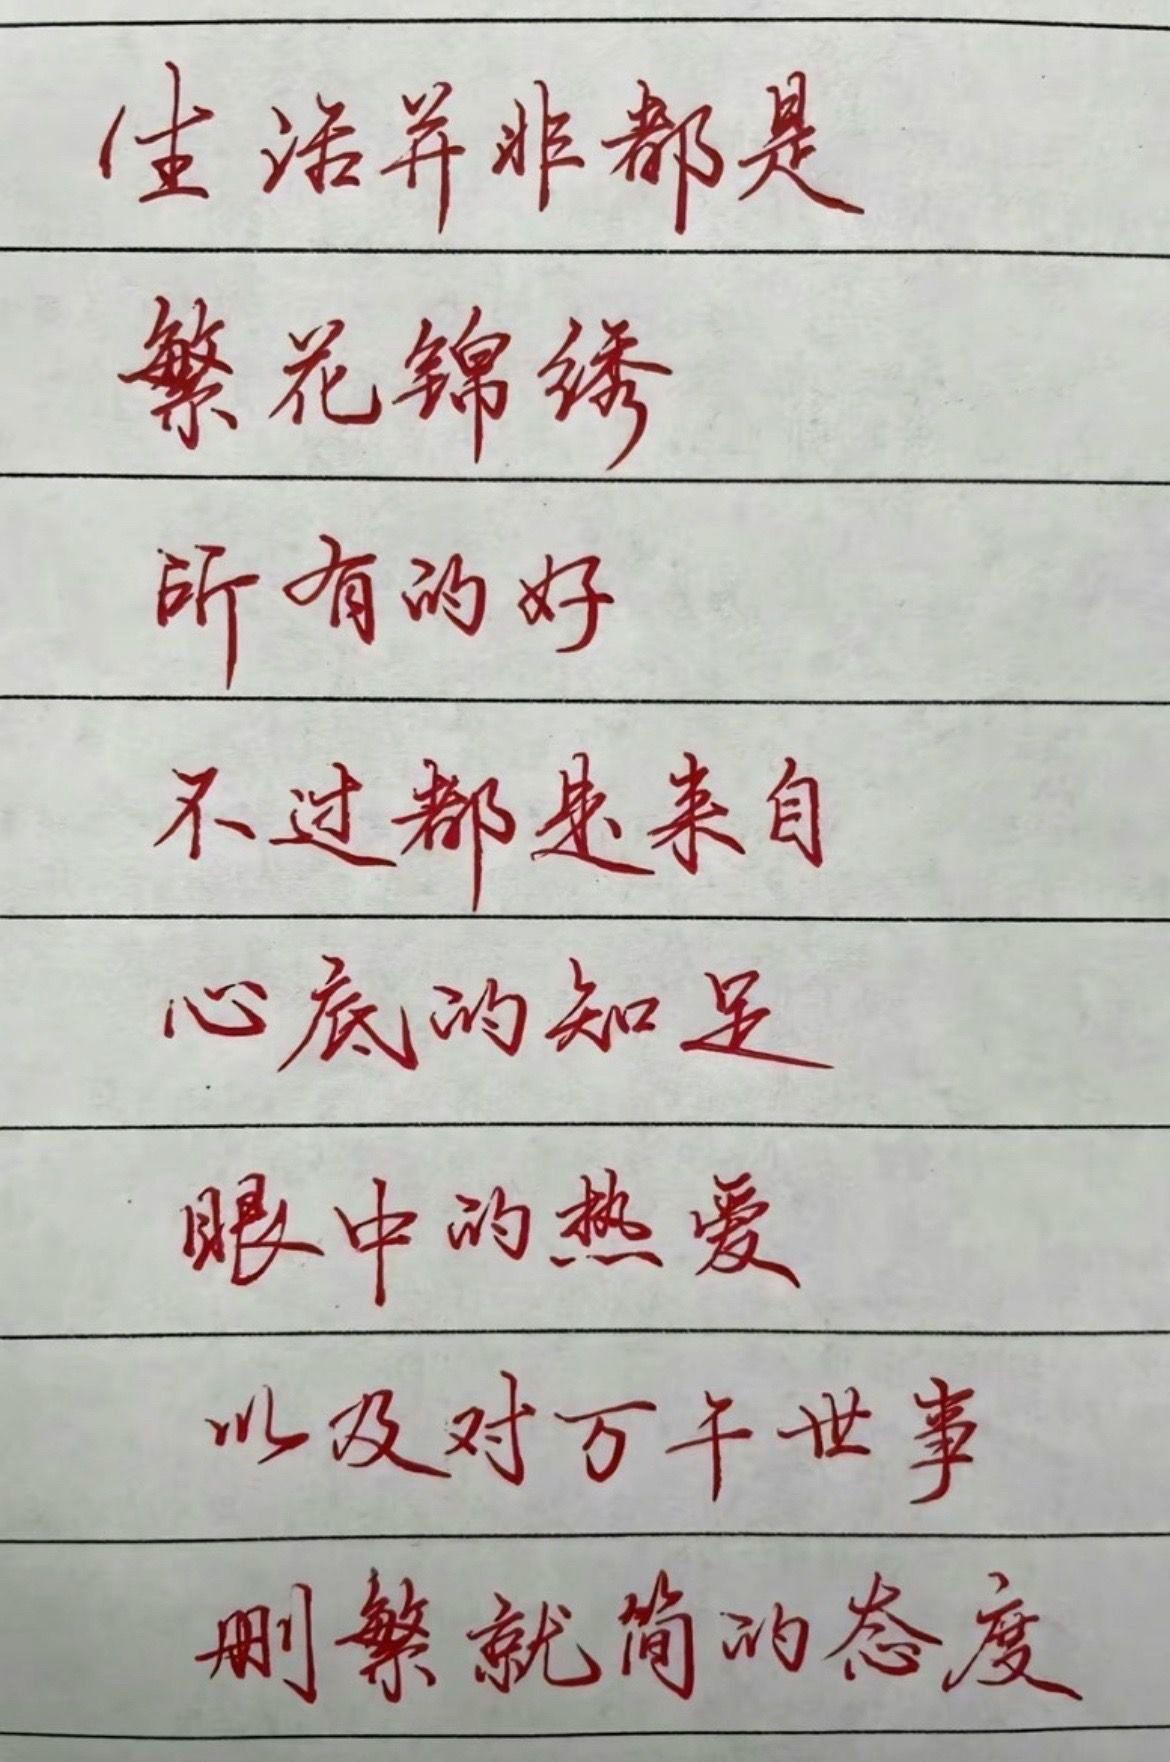 生活并非都是
繁花锦绣
所有的好
不过都是来自
心底的知足
眼中的热爱
以及对万千世事
删繁就简的态度